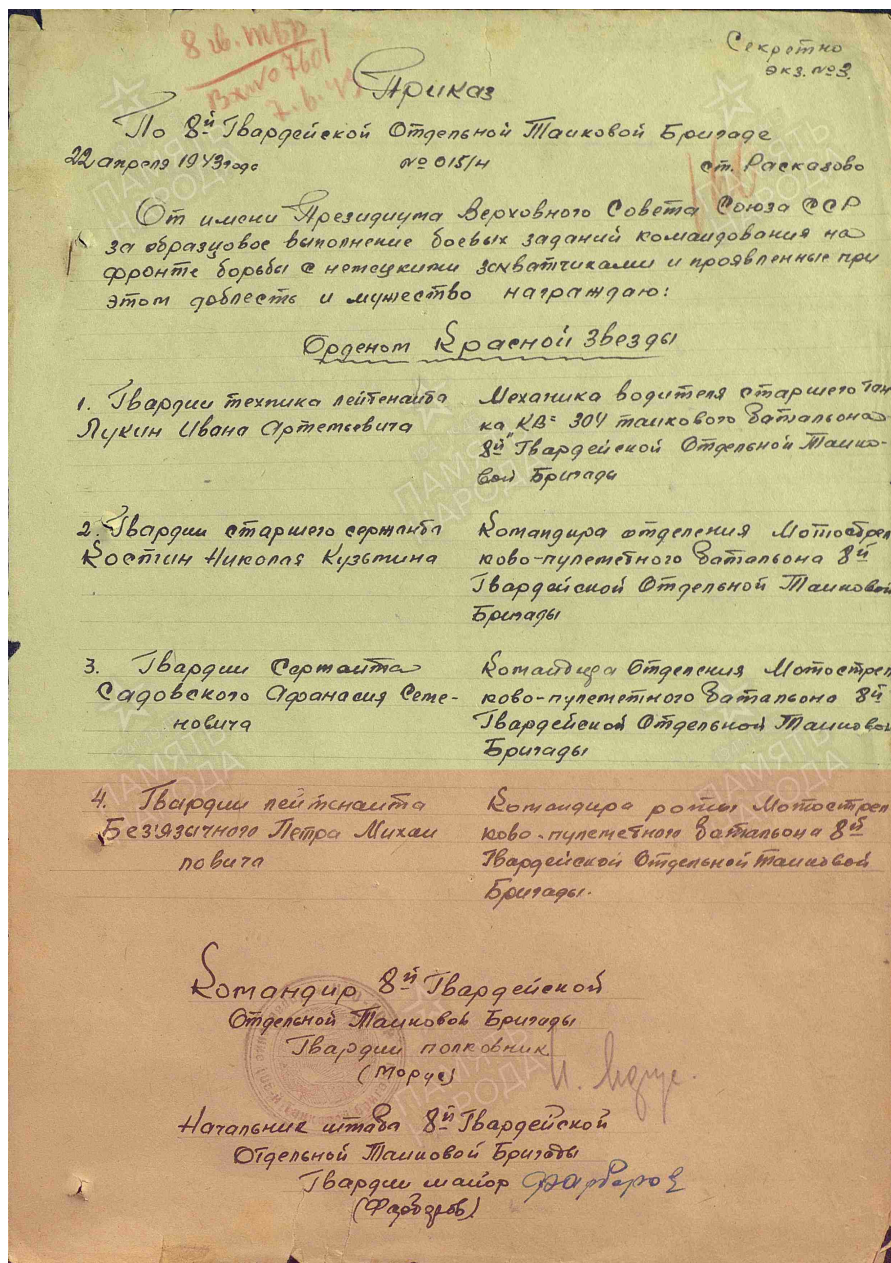 8 гв. тбр
Вх № 07601
7.6.43
Секретно
экз. № 3.
Приказ
По 8й Гвардейской Отдельной Танковой Бригаде
22 апреля 1943 года № 015/н ст. Расказово
От имени Президиума Верховного Совета Союза ССР
за образцовое выполнение боевых заданий командования на
фронте борьбы с немецкими захватчиками и проявленные при
этом доблесть и мужество награждаю:
Орденом Красной Звезды
1. Гвардии техника лейтенанта
Лукин Ивана Артемьевича
Механика водителя старшего тан
ка КВ= 304 танкового батальона
8й Гвардейской Отдельной Танко-
вой Бригады
2. Гвардии старшего сержанта
Костин Николая Кузьмина
Командира отделения Мотострел
ково-пулеметного батальона 8й
Гвардейской Отдельной Танковой
Бригады
3. Гвардии Сержанта
Садовского Афанасия Семе-
новича
Командира Отделения Мотострел
ково-пулеметного батальона 8й
Гвардейской Отдельной Танковой
Бригады
4. Гвардии лейтенанта
Без'язычного Петра Михаи
ловича
Командира роты Мотострел
ково-пулеметного батальона 8й
Гвардейской Отдельной Танковой
Бригады.
Командир 8й Гвардейской
Отдельной Танковой Бригады
Гвардии полковник
(Морус) И. Морус.
Начальник штаба 8й Гвардейской
Отдельной Танковой Бригады
Гвардии майор
ПАМЯТЬ
НАРОДА